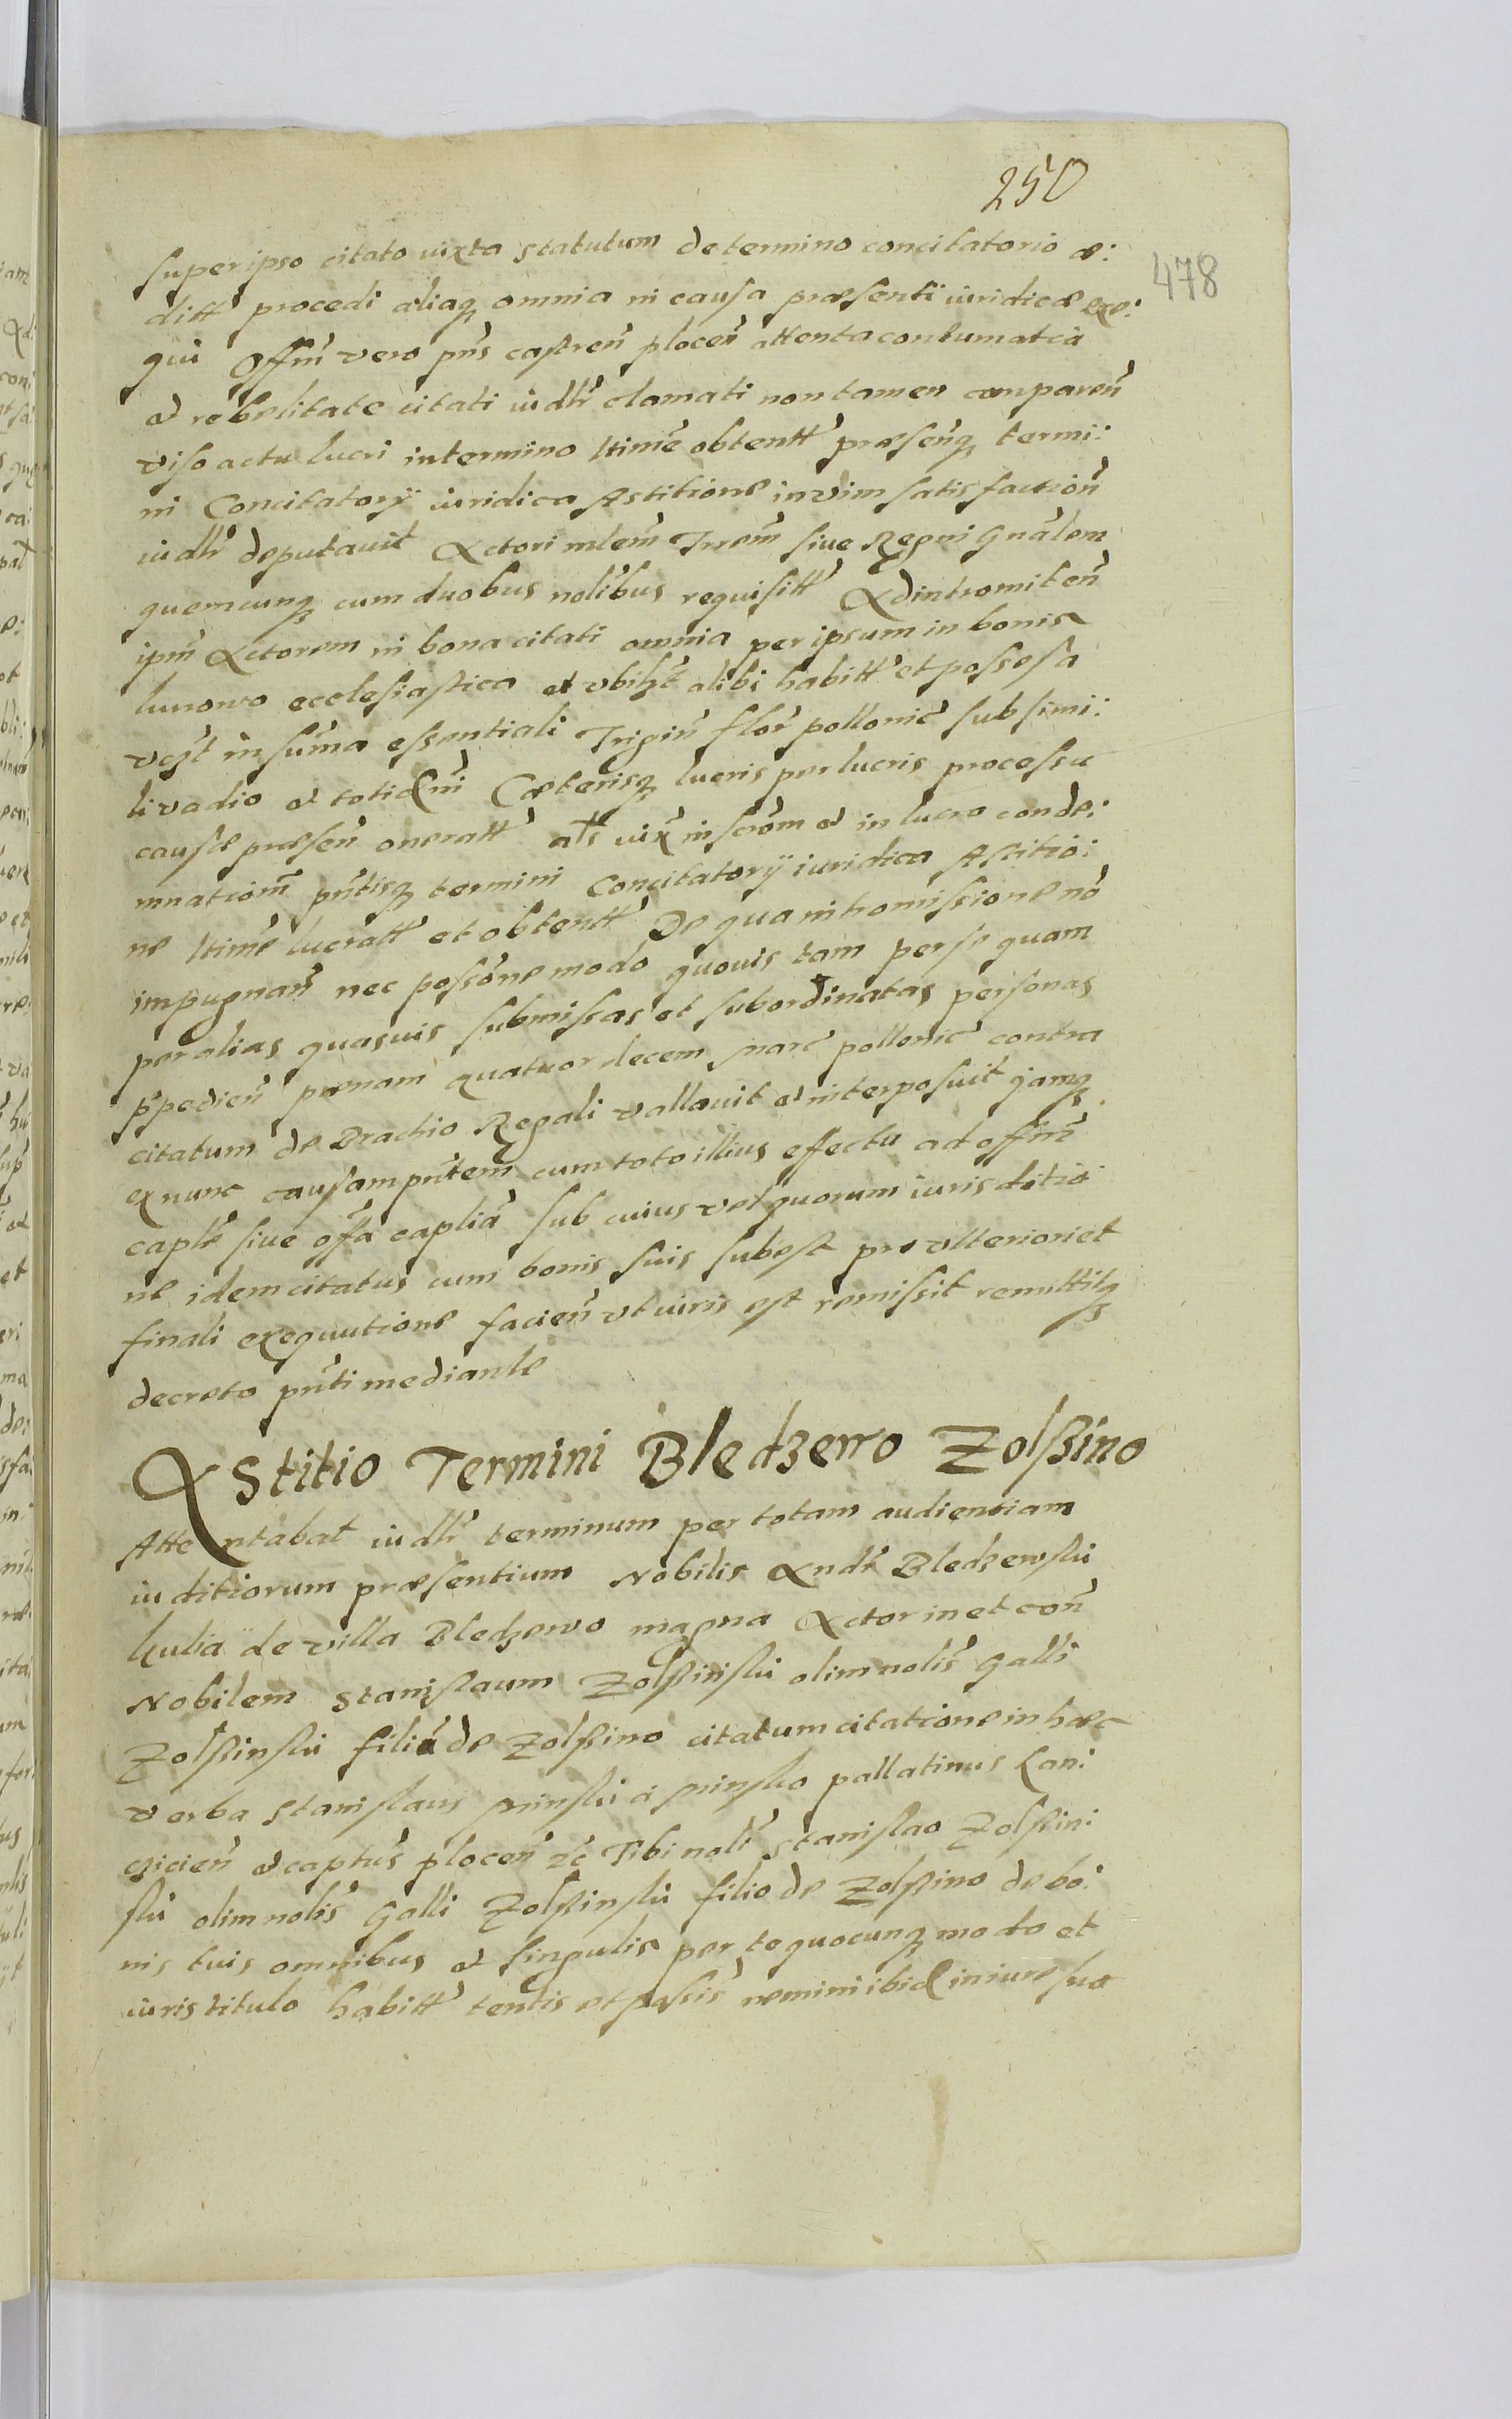 250
478
super ipso citato iuxta statutum de termino concitatorio æ:
ditt procedi aliaq omnia in causa præsenti iuridicæ exe:
qui Offm vero pns castren plocen attenta contumatia
et rebelitate citati iudlr clamati non tamen comparen
viso actu lucri in termino ltime obtentt præsenq termi:
ni Concitatorÿ iuridica Astitione in vim satisfaction
iudlr deputavit Actori mlem Irrem sive Regni Gnalem
quemcunq cum duobus nolibus requisitt Ad intromiten
ipm Actorem in bona citati omnia per ipsum in bonis
lunowo ecclesiastica et vbilzt alibi habitt et possessa
vczt in suma essentiali Trigin flor pollonic sub simi:
li vadio et totidm Cæterisq lucris per lucris processu
causæ præsen oneratt als iux inscrom et in lucro conde:
mnationm pntisq termini Concitatorÿ iuridica Astitio:
ne ltime lucratt et obtentt De qua intromissione no
impugnan nec possone modo quovis tam per se quam
per alias quasvis submissas et subordinatas personas
ppedien pænam quatuordecem marc pollonic contra
citatum de Brachio Regali vallavit et interposuit jamq
ex nunc causam pntem cum toto illius effectu ad offm
caplr sive offa caplia sub cuius vel quorum iurisditio
ne idem citatus cum bonis suis subest pro vlteriori et
finali exequutione facien vt iuris est remissit remittitq
decreto pnti mediante
Astitio Termini Bledzewo Zolßino
Attentabat iudlr terminum per totam audientiam
iuditiorum præsentium Nobilis Andr Bledzewski
kulia de villa Bledzewo magna Actor in et con
Nobilem Stanislaum Zolßinski olim nolis Galli
Zolßinski filiu de Zolßino citatum citatione in hæc
verba Stanislaus minski a minsko pallatinus Lan:
cicien et captus plocen zc Tibi noli Stanislao Zolßin:
ski olim nolis Galli Zolßinski filio de Zolßino de bo:
nis tuis omnibus et singulis per te quocunq modo et
iuris titulo habitt tentis et possis nemini ibid in iure suo